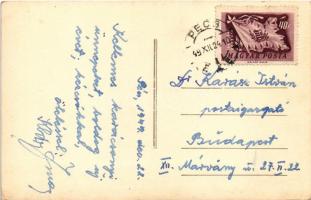 Pécs, 1949. dec. 22.
Kellemes karácsonyi
ünnepeket, boldog új
évet kívánnak
PÉCS
49 XII 24
40f
MAGYAR POSTA
Dr Karasz István
postaigazgató
Budapest
XII. Márvány u. 27. II. 22